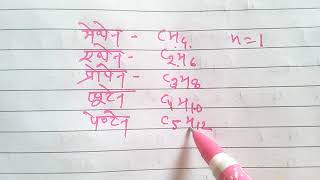 मेथेन - CH4 n=1
एथेन - C2H6
प्रोपेन C3H8
ब्यूटेन C4H10
पेन्टेन C5H12